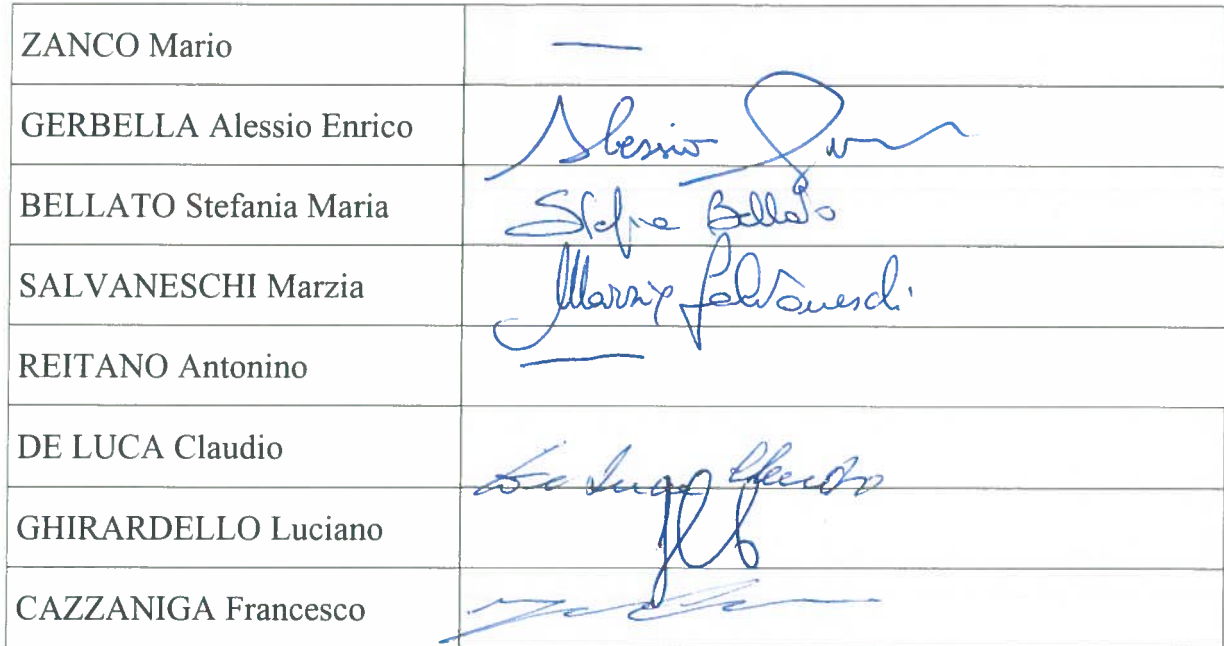 ZANCO Mario —
GERBELLA Alessio Enrico Alessio
BELLATO Stefania Maria Stefania Bellato
SALVANESCHI Marzia Marzia Salvaneschi
REITANO Antonino —
DE LUCA Claudio De Luca Claudio
GHIRARDELLO Luciano
CAZZANIGA Francesco